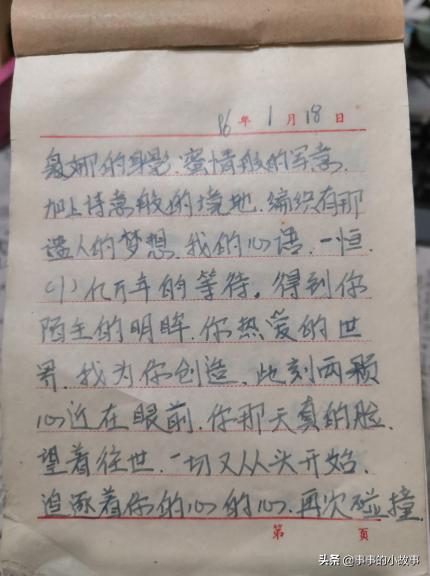 86年1月18日
袅娜的身影.蜜情般的写意.
加上诗意般的境地.编织有那
遥人的梦想.我的心语.一恒.
(1)亿万年的等待。得到你
陌生的明眸.你热爱的世
界.我为你创造.此刻两颗
心近在眼前.你那天真的脸.
望着往世.一切又从头开始.
追逐着你的心的心.再次碰撞.
第 页
头条@事事的小故事